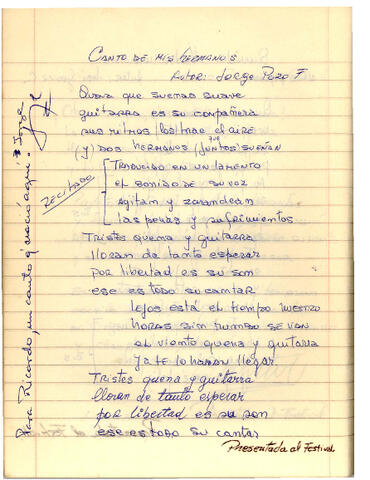 CANTO DE MIS HERMANOS
AUTOR: JORGE POZO F
Quena que suenas suave
guitarra es su compañera
sus ritmos (los) trae el aire
(y) DOS HERMANOS (JUNTOS) que SUEÑAN
RECITADO
TRADUCIDO EN UN LAMENTO
el sonido de su voz
agitan y zarandean
las penas y sufrimientos
TRISTES quena y guitarra
lloran de tanto esperar
por libertad es su son
ese es todo su cantar
lejos está el tiempo nuestro
HORAS sin rumbo se van
al viento quena y guitarra
ya te lo harán llegar
TRISTES quena y guitarra
lloran de tanto esperar
por libertad es su son
ese es todo su cantar
Presentada al Festival
Para Ricardo, un canto q' nació aquí. Jorge